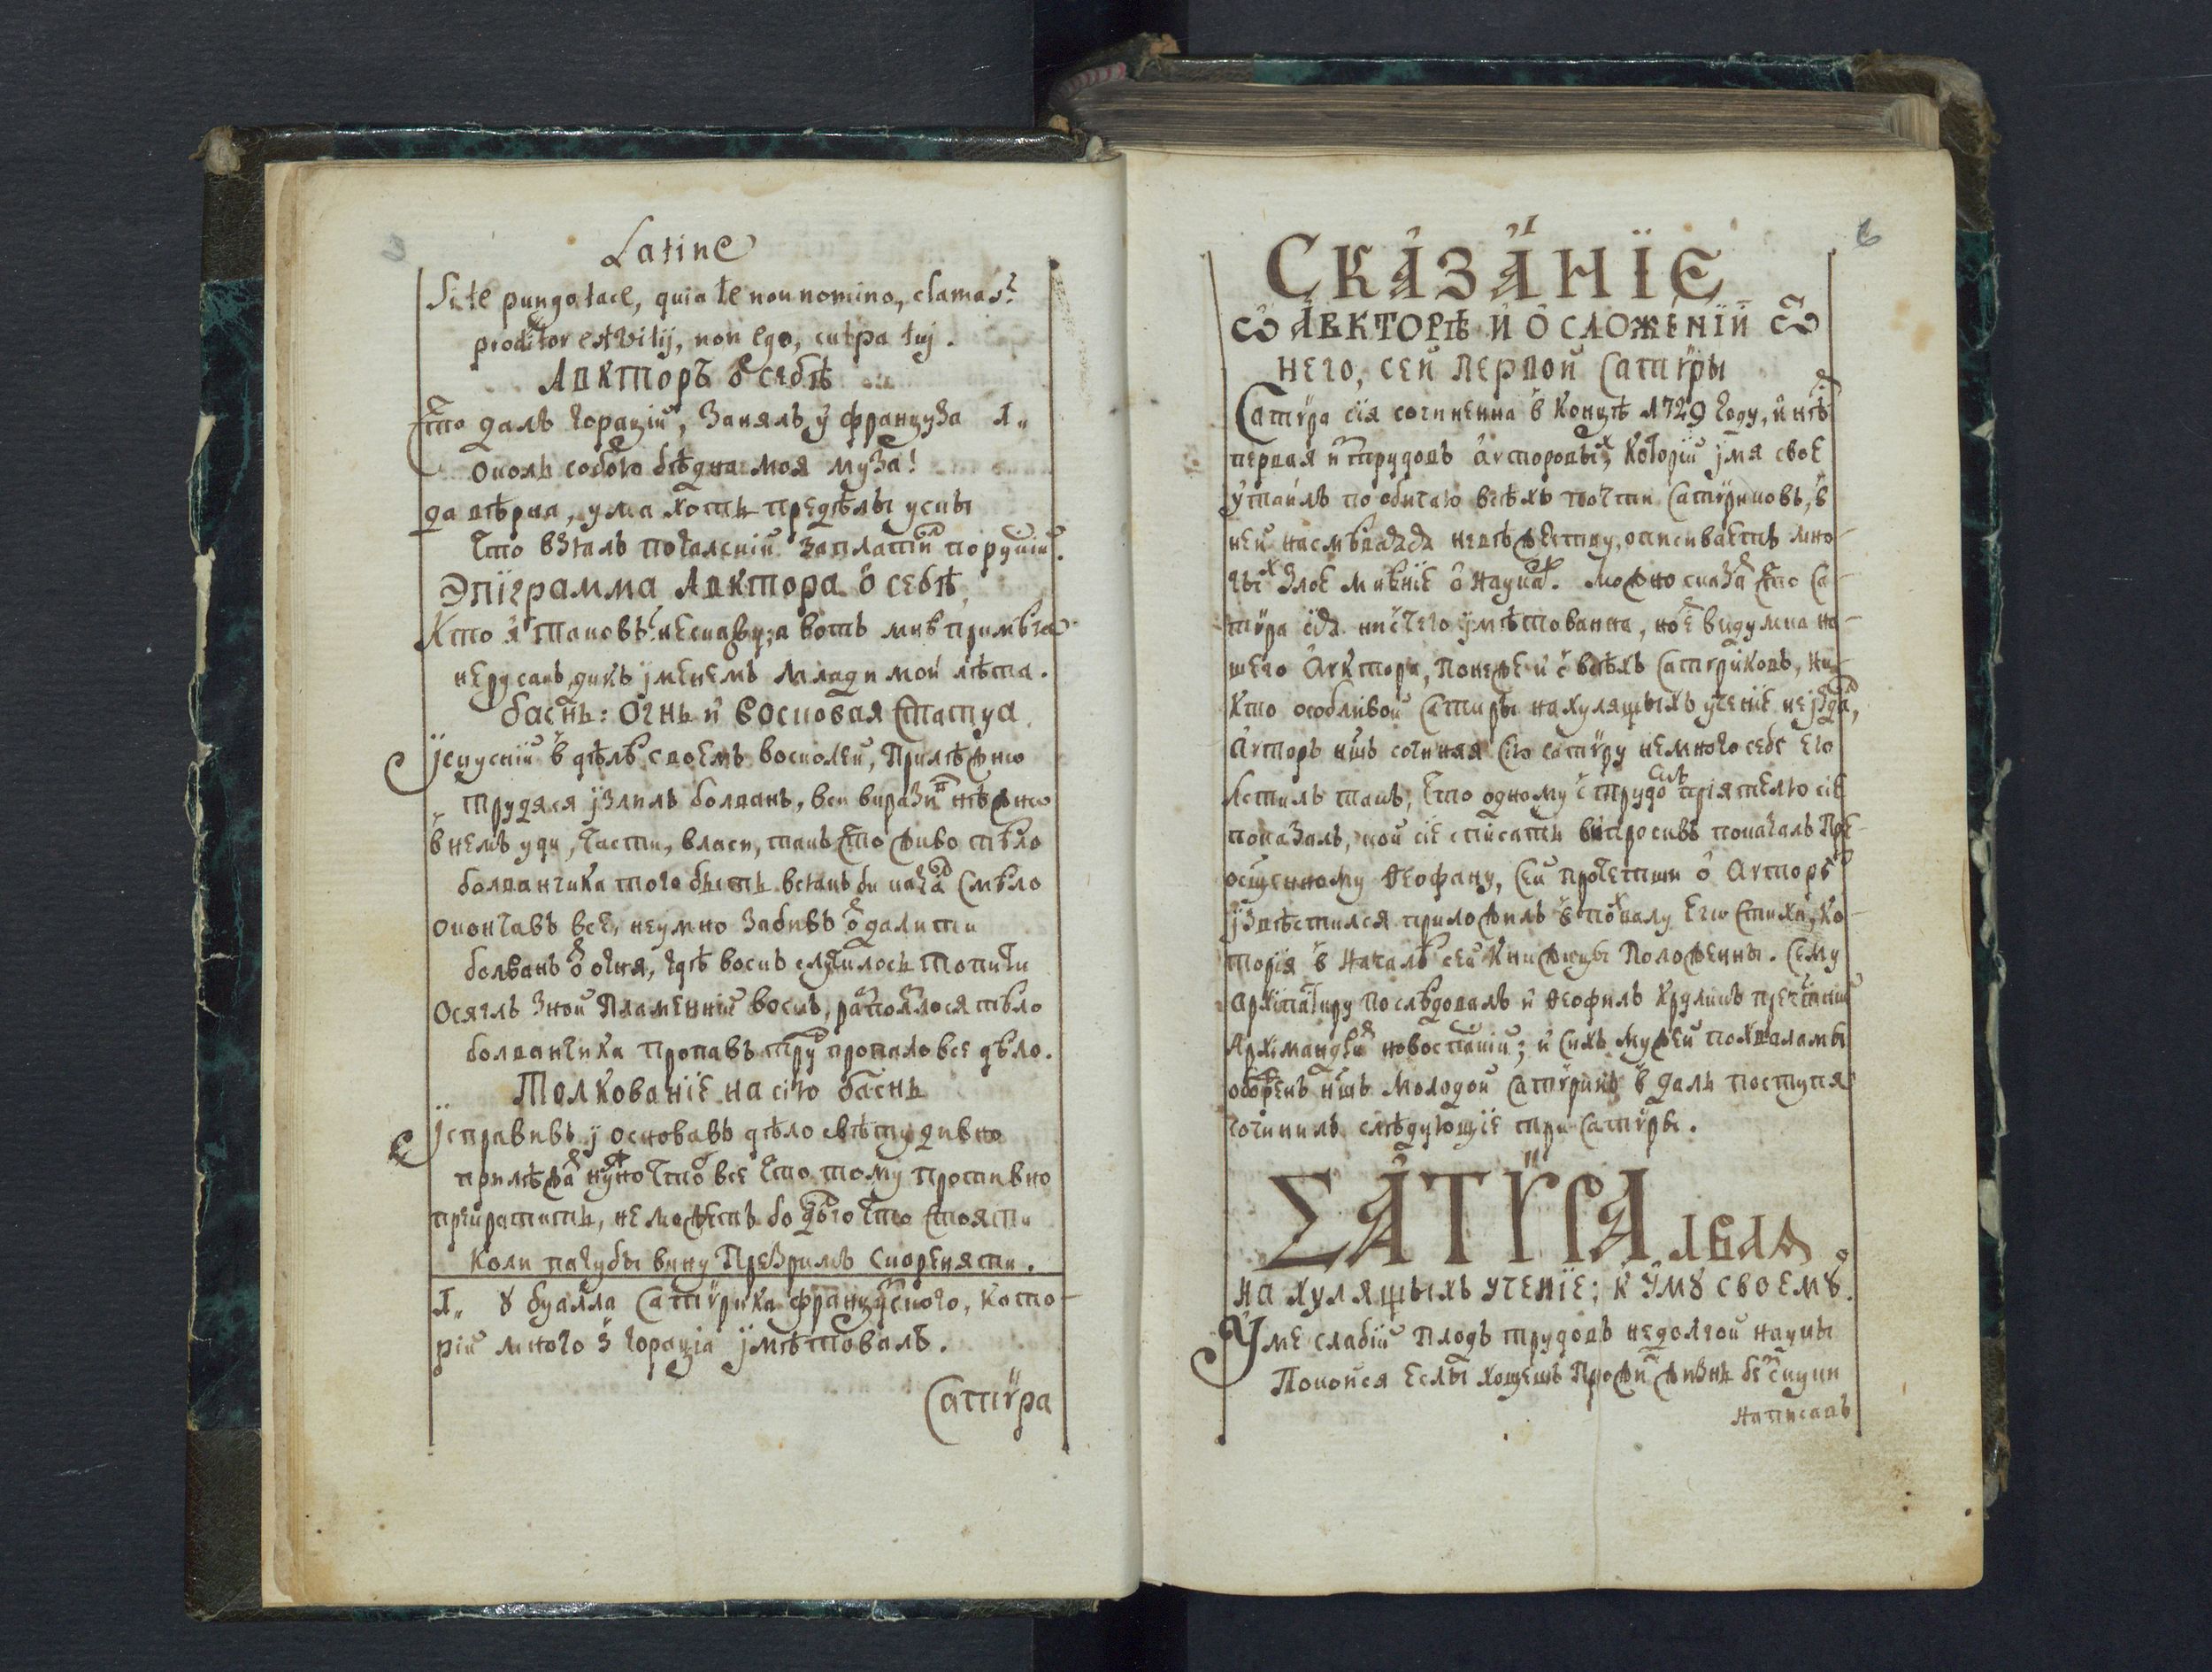 Latine
Si te pungo tace, quia te non nomino, clamas?
proditor est vitij, non ego, culpa tuj.
Авкторъ ѻ себѣ
Что далъ горацій, занялъ у француза 1,,
о коль собою бѣдна моя муза!
да вѣрна, ума хоть предѣлы узки
Что взялъ по галскій заплатил по рускій.
Эпіграмма Авктора ѻ себѣ
Кто я таковъ? не скажу, а вотъ мнѣ примѣта
не русакъ, дикъ іменемъ млади мои лѣта.
баснь: Огнь и восковая статуа
Іскусній в дѣлѣ своемъ восколей, прилѣжно
трудяся ізлилъ болванъ, вси вирази нѣжно
в немъ уди, части, власи, такъ что живо тѣло
болванчика того быть всякъ би казал смѣло
окончавъ все, неумно забивъ ѻдалити
болванъ ѻ огня, гдѣ воскъ случилось топити
Осяглъ зной пламенній воскъ, растоялося тѣло
болванчика пропавъ труд пропало все дѣло.
Толкованіе на сію баснь
Ісправивъ і основавъ дѣло свѣту дивно
прилѣжа нужно что все что тому противно
прекратить, не можетъ бо дѣло что стояти
коли пагубы вину презримъ скореняти.
1,, ꙋ буалла сатѵрика французского, кото-
рій много з горація імѣтовалъ.
Сатѵра
6
СКАЗАНІЕ
Ѡ АВКТОРѢ И О СЛОЖЕНІИ Ѿ
него, сей первой сатѵры
Сатѵра сія сочиненна в концѣ 1729 году, и есть
первая и трудовъ авторовых, которій імя свое
утаилъ по обичаю всѣхъ почти сатѵриковъ, в
ней насмѣвадада невѣжеству, описиваетъ мно-
гых злое мнѣніе ѻ наука. Можно сказа что са-
тѵра сіа ни с чего імѣтованна, но е видумка на-
шего авктора, понеже и с всѣхъ сатѵриковъ, ни
кто особливой сатири на хулящыхъ ученіе не ізда,
авторъ ншъ сочиняя сію сатѵру немного себе ею
лстилъ такъ, что одному с трудо сил пріятелю сіе
показалъ, кой сіе списать випросивъ показалъ пре-
осщенному Ѳеофану, сей прочетши ѻ авторѣ
ізвѣстился приложилъ в похвалу его стихи, ко-
торія в началѣ сей книжицы положенны. Сему
архіпастиру послѣдовалъ и Ѳеофилъ круликъ пречестній
архімандри новоспаскій; и сихъ мужей похваламы
ободренъ ншъ молодой сатѵрикъ в даль поступя
сочинилъ слѣдующіе три сатѵры.
ΣАТѴРА 1ВАѦ.
на хулящыхъ ученіе; к ꙋмꙋ своемꙋ.
Уме слабій плодъ трудовъ недолгой науки
Покойся еслы хощешъ прожи жизнь бе скуки
написавъ